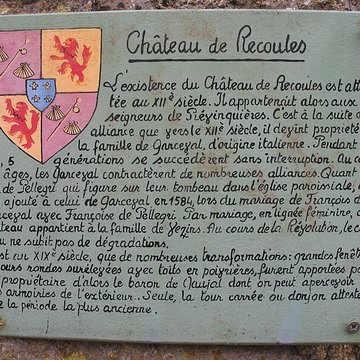 Château de Recoules
L'existence du Château de Recoules est att
tée au XIIe siècle. Il appartenait alors aux
seigneurs de Prévinquières. C'est à la suite d
alliance que vers le XIIIe siècle, il devint propriét
la famille de Garceval, d'origine italienne. Pendant
, 5 générations se succédèrent sans interruption. Au c
âges, les Garceval contractèrent de nombreuses alliances. Quant
de Pellegri qui figure sur leur tombeau dans l'église paroissiale,
ajouté à celui de Garceval en 1584, lors du mariage de François d
rceval avec Françoise de Pellegri. Par mariage, en lignée féminine, c
teau appartient à la famille de Vezins. Au cours de la Révolution, le c
u ne subit pas de dégradations.
est au XIXe siècle, que de nombreuses transformations: grandes fenêt
ours rondes surélevées avec toits en poivrières, furent apportées p
propriétaire d'alors le baron de Naujal dont on peut apercevoir
armoiries de l'extérieur. Seule, la tour carrée ou donjon attest
la période la plus ancienne.